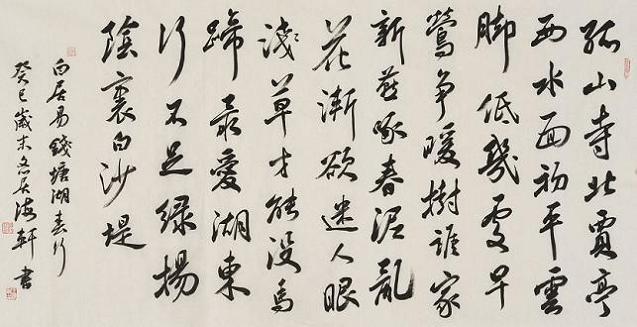 孤山寺北賈亭
西水面初平雲
脚低幾處早
鶯争暖樹誰家
新燕啄春泥亂
花漸欲迷人眼
淺草才能没馬
蹄最愛湖東
行不足緑楊
陰裏白沙堤
白居易錢塘湖春行
癸巳歲末海軒書